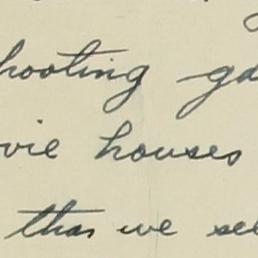 hooting ga
vie houses
than we see